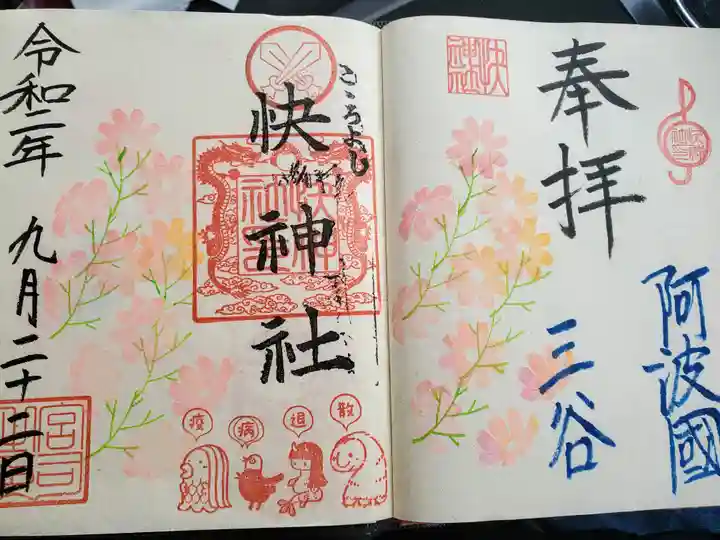 阿波國
三谷
奉拝
快神社
こころよし
快神社
令和二年 九月二十二日
宮司
疫
病
退
散